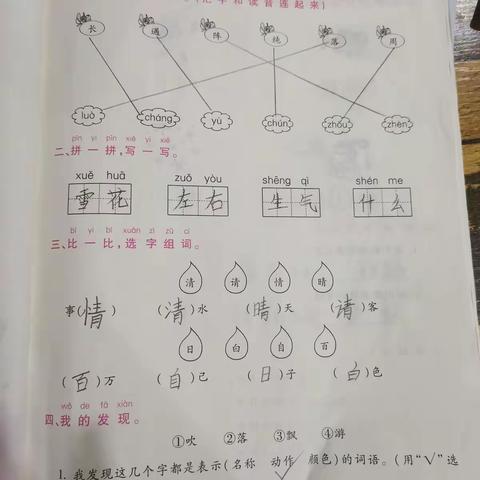 汇 字 和 读 音 连 起 来)
长 遇 阵 纯 落 周
luò cháng yù chún zhōu zhèn
pīn yi pīn xiě yì xiě
二、拼 一 拼,写 一 写。
xuě huā zuǒ yòu shēng qì shén me
雪 花 左 右 生 气 什 么
bǐ yi bǐ xuǎn zì zǔ cí
三、比 一 比,选 字 组 词。
清 请 情 晴
事(情) (清)水 (晴)天 (请)客
日 白 自 百
(百)万 (自)己 (日)子 (白)色
wǒ de fā xiàn
四、我 的 发 现。
①吹 ②落 ③飘 ④游
1. 我发现这几个字都是表示(名称 动作 颜色)的词语。(用“√”选